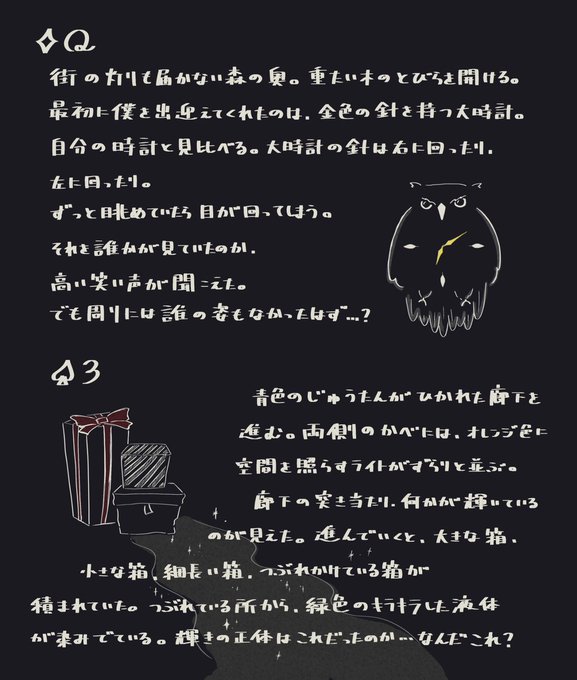 ♦Q
街の灯りも届かない森の奥。重たい木のとびらを開ける。
最初に僕を出迎えてくれたのは、金色の針を持つ大時計。
自分の時計と見比べる。大時計の針は右に回ったり、
左に回ったり。
ずっと眺めていたら目が回ってしまう。
それを誰かが見ていたのか、
高い笑い声が聞こえた。
でも周りには誰の姿もなかったはず…?
♠3
青色のじゅうたんがひかれた廊下を
進む。両側のかべには、オレンジ色に
空間を照らすライトがずらりと並ぶ。
廊下の突き当たり、何かが輝いている
のが見えた。進んでいくと、大きな箱、
小さな箱、細長い箱、つぶれかけている箱が
積まれていた。つぶれている所から、緑色のキラキラした液体
が染みでている。輝きの正体はこれだったのか…なんだこれ?